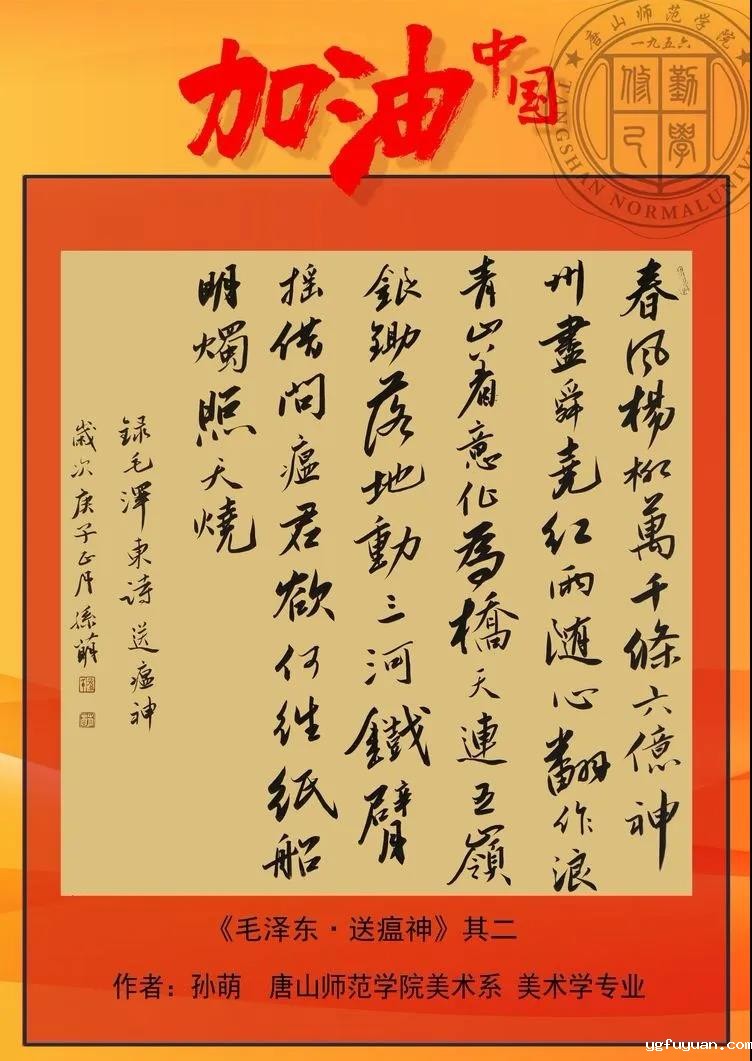 加油中国
唐山师范学院
一九五六
勤学
修己
TANGSHAN NORMAL UNIVE
春风杨柳萬千條六億神
州盡舜堯红雨随心翻作浪
青山着意化為橋天連五嶺
銀鋤落地動三河鐵臂
摇借问瘟君欲何往纸船
明燭照天燒
録毛澤東詩送瘟神
歲次庚子正月孫萌
《毛泽东·送瘟神》其二
作者：孙萌 唐山师范学院美术系 美术学专业
ygfuyuan.com